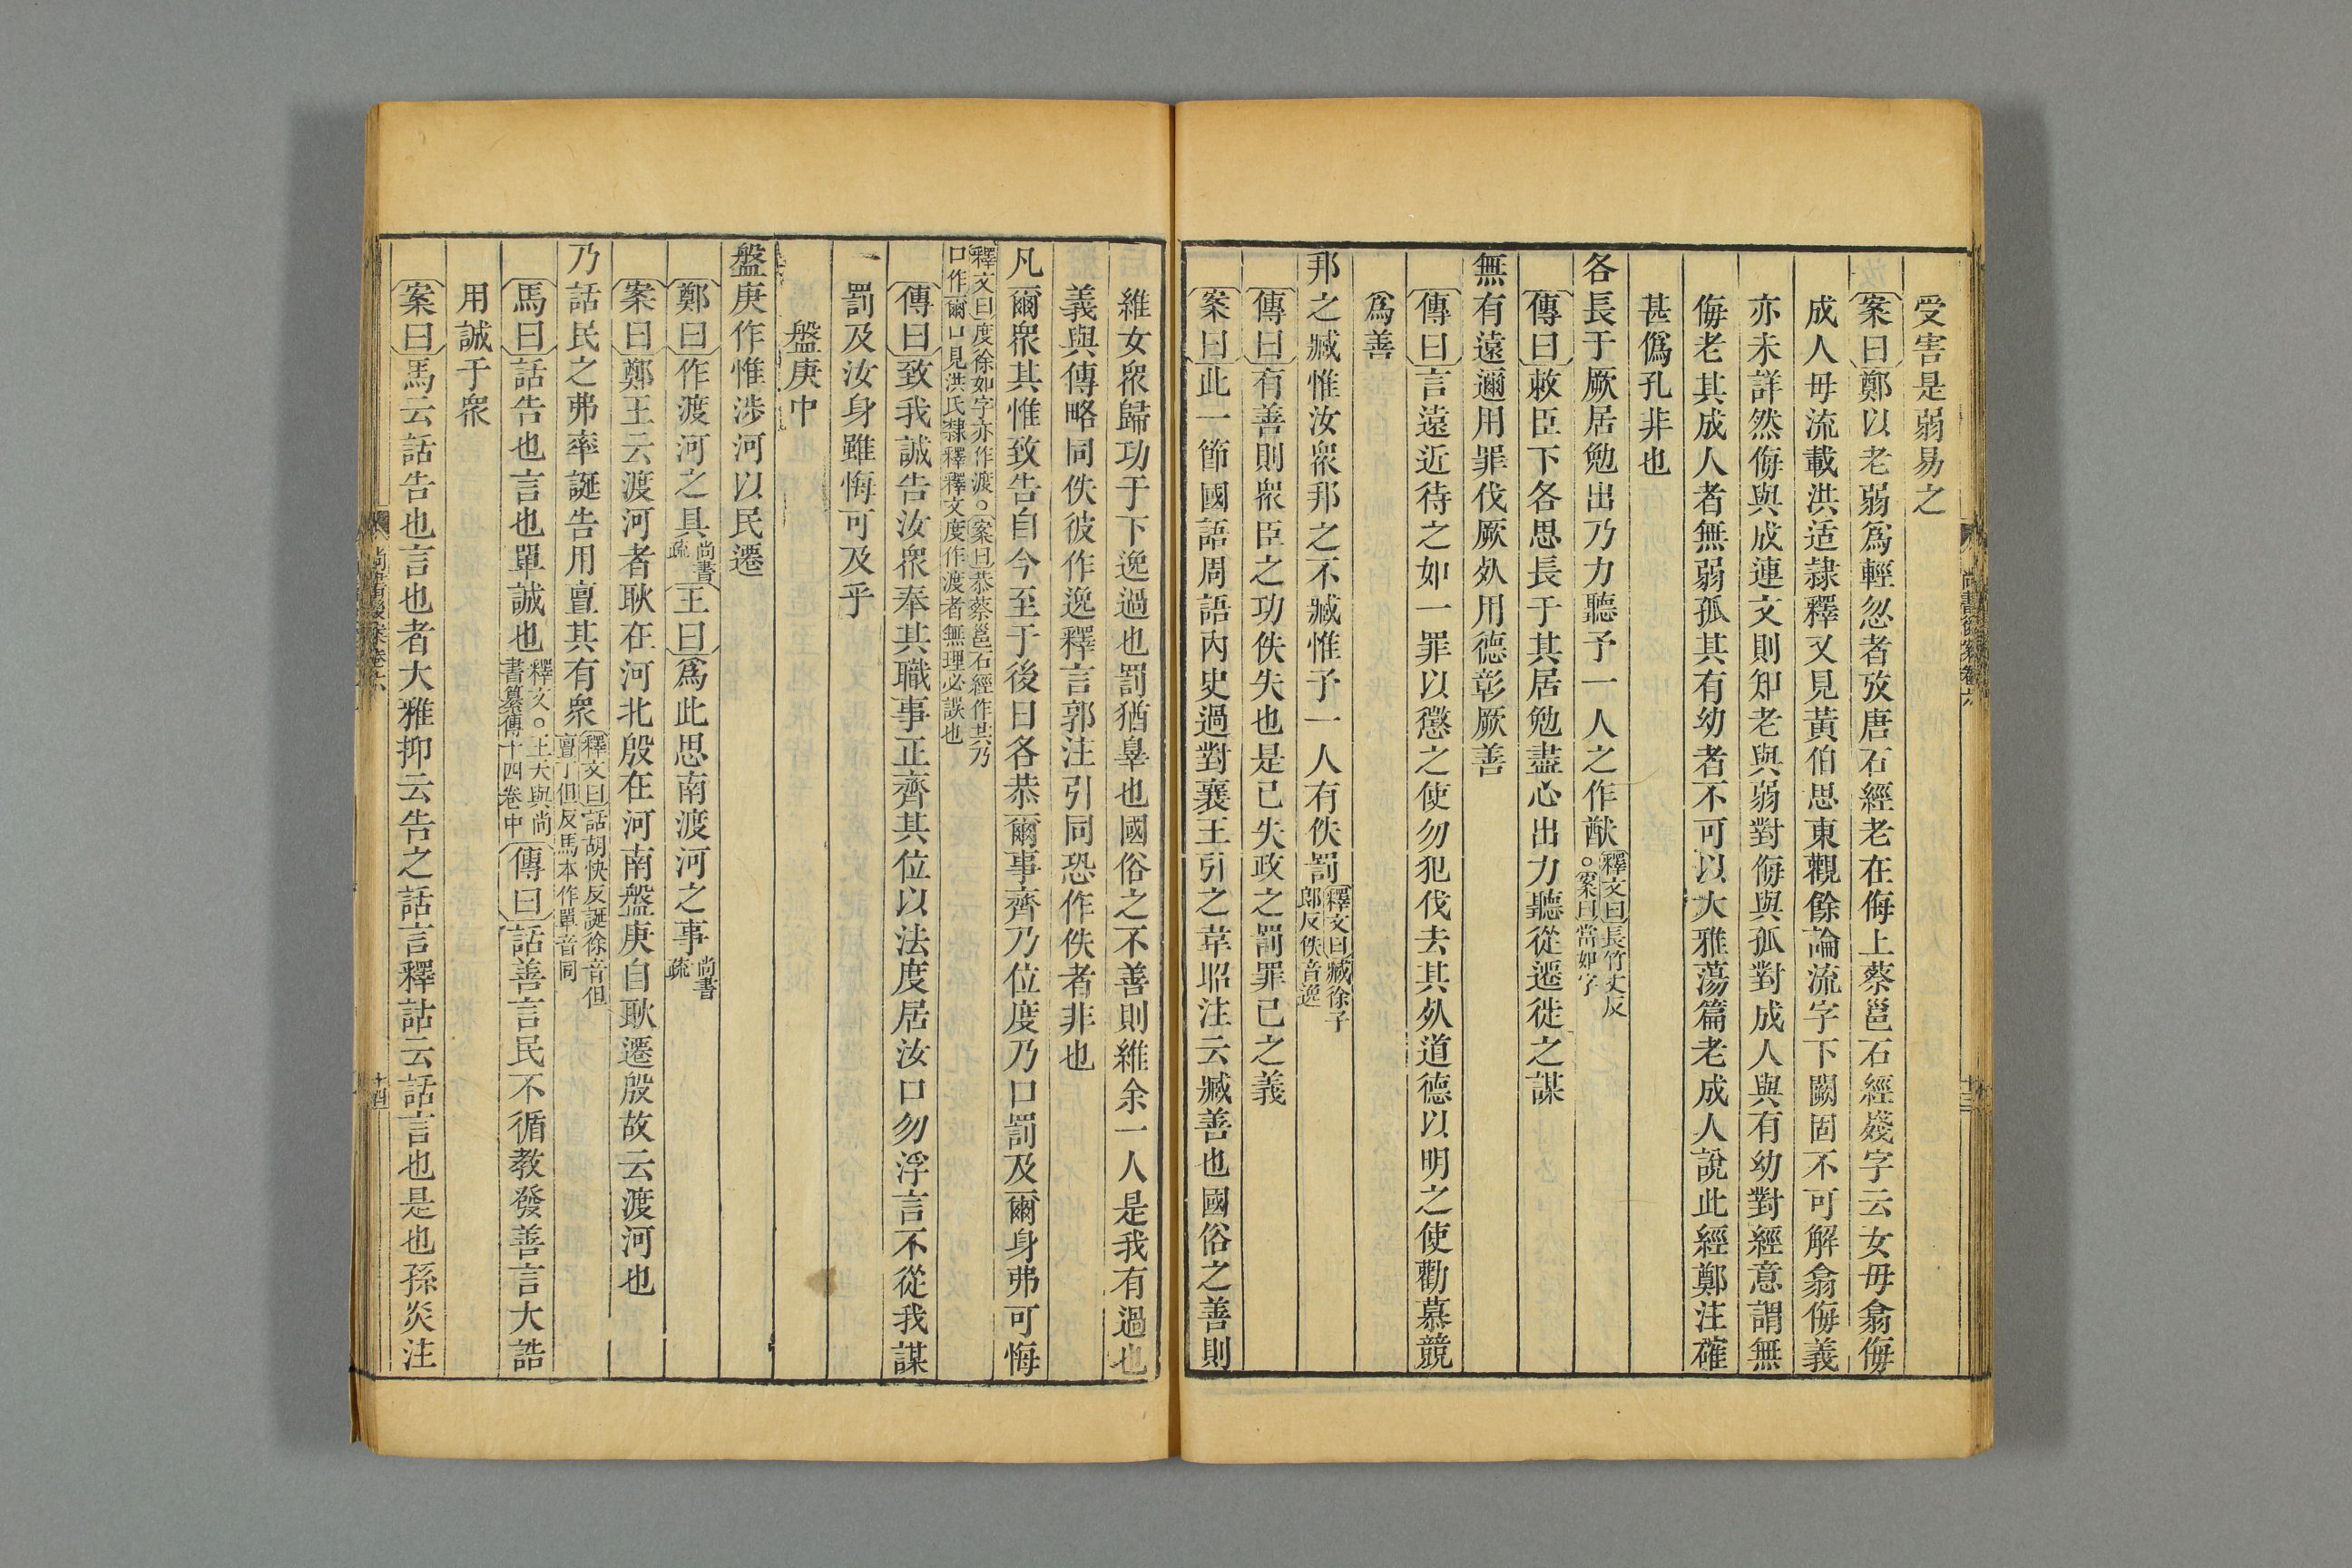 受害是弱易之
案曰鄭以老弱爲輕忽者攷唐石經老在侮上蔡邕石經殘字云女毋翕侮
成人毋流載洪适隷釋又見黃伯思東觀餘論流字下闕固不可解翕侮義
亦未詳然侮與成連文則知老與弱對侮與孤對成人與有幼對經意謂無
侮老其成人者無弱孤其有幼者不可以大雅蕩篇老成人說此經鄭注確
甚僞孔非也
各長于厥居勉出乃力聽予一人之作猷。釋文曰長竹丈反案曰當如字
傳曰敕臣下各思長于其居勉盡心出力聽從遷徙之謀
無有遠邇用罪伐厥死用德彰厥善
傳曰言遠近待之如一罪以懲之使勿犯伐去其死道德以明之使勸慕競
爲善
邦之臧惟汝衆邦之不臧惟予一人有佚罰釋文曰臧徐子郎反佚音逸
傳曰有善則衆臣之功佚失也是己失政之罰罪己之義
案曰此一節國語周語內史過對襄王引之韋昭注云臧善也國俗之善則
維女衆歸功于下逸過也罰猶辠也國俗之不善則維余一人是我有過也
義與傳略同佚彼作逸釋言郭注引同恐作佚者非也
凡爾衆其惟致告自今至于後日各恭爾事齊乃位度乃口罰及爾身弗可悔
釋文曰度徐如字亦作渡。案曰恭蔡邕石經作共乃口作爾口見洪氏隸釋釋文度作渡者無理必誤也
傳曰致我誠告汝衆奉其職事正齊其位以法度居汝口勿浮言不從我謀
罰及汝身雖悔可及乎
盤庚中
盤庚作惟涉河以民遷
鄭曰作渡河之具尚書疏王曰爲此思南渡河之事尚書疏
案曰鄭王云渡河者耿在河北殷在河南盤庚自耿遷殷故云渡河也
乃話民之弗率誕告用亶其有衆釋文曰話胡快反誕徐音但亶丁但反馬本作單音同
馬曰話告也言也單誠也釋文。王天與尚書纂傳十四卷中傳曰話善言民不循教發善言大誥
用誠于衆
案曰馬云話告也言也者大雅抑云告之話言釋詁云話言也是也孫炎注
尚書後案卷六
十三
尚書後案卷六
十四